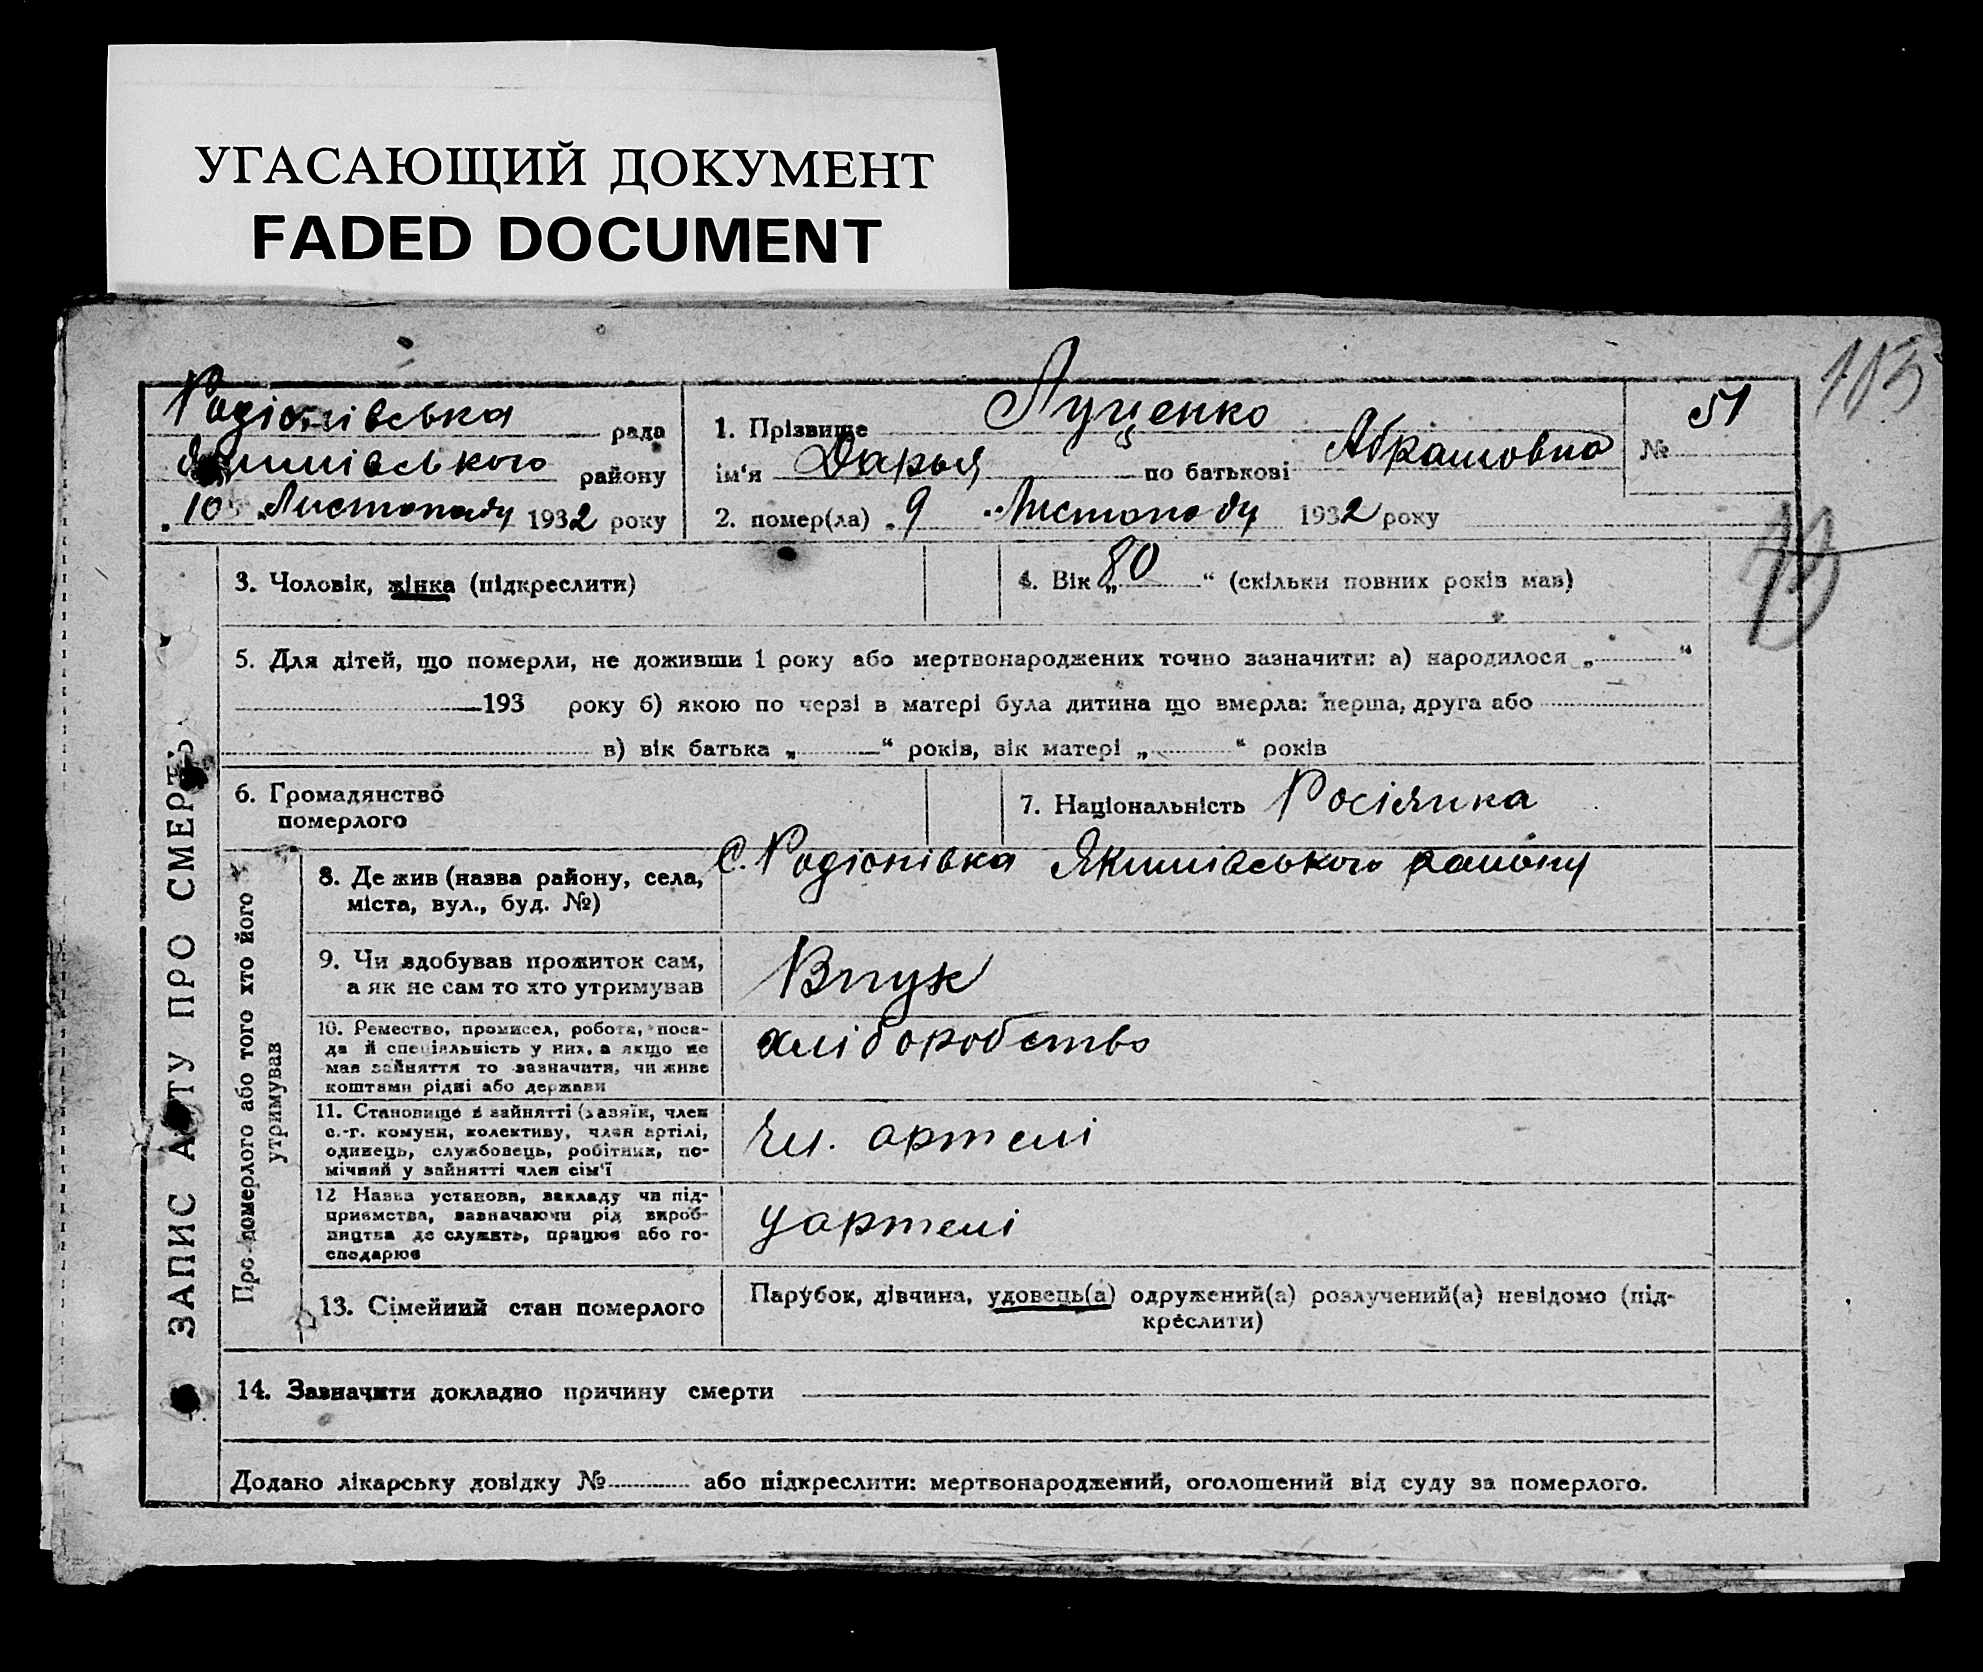 УГАСАЮЩИЙ ДОКУМЕНТ
FADED DOCUMENT
103
Родіонівська рада
Якимівського району
„10 „Листопаду 1932 року
1. Прізвище Луценко
ім'я Дарья по батькові Абрамовна
2. помер(ла) „9 „Листопаду 1932 року
№ 51
ЗАПИС АКТУ ПРО СМЕРТЬ
3. Чоловік, жінка (підкреслити)
4. Вік „80“ (скільки повних років мав)
5. Для дітей, що померли, не доживши 1 року або мертвонароджених точно зазначити: а) народилося „ “
193 року б) якою по черзі в матері була дитина що вмерла: перша, друга або
в) вік батька „ “ років, вік матері „ “ років
6. Громадянство
померлого
7. Національність Росіянка
Про домерлого або того хто його
утримував
8. Де жив (назва району, села,
міста, вул., буд. №)
С. Родіонівка Якимівського району
9. Чи здобував прожиток сам,
а як не сам то хто утримував
Внук
10. Ремество, промисел, робота, поса-
да й спеціяльність у них, а якщо не
мав зайняття то зазначити, чи живе
коштами рідні або держави
хліборобство
11. Становище в зайнятті (хазяїн, член
с.-г. комуни, колективу, член артілі,
одинець, службовець, робітник, по-
мічний у зайнятті член сім'ї
Чл. артелі
12 Назва установи, закладу чи під-
приємства, зазначаючи рід вироб-
ництва де служить, працює або го-
сподарює
у артелі
13. Сімейний стан померлого
Парубок, дівчина, удовець(а) одружений(а) розлучений(а) невідомо (під-
креслити)
14. Зазначити докладно причину смерти
Додано лікарську довідку № або підкреслити: мертвонароджений, оголошений від суду за померлого.